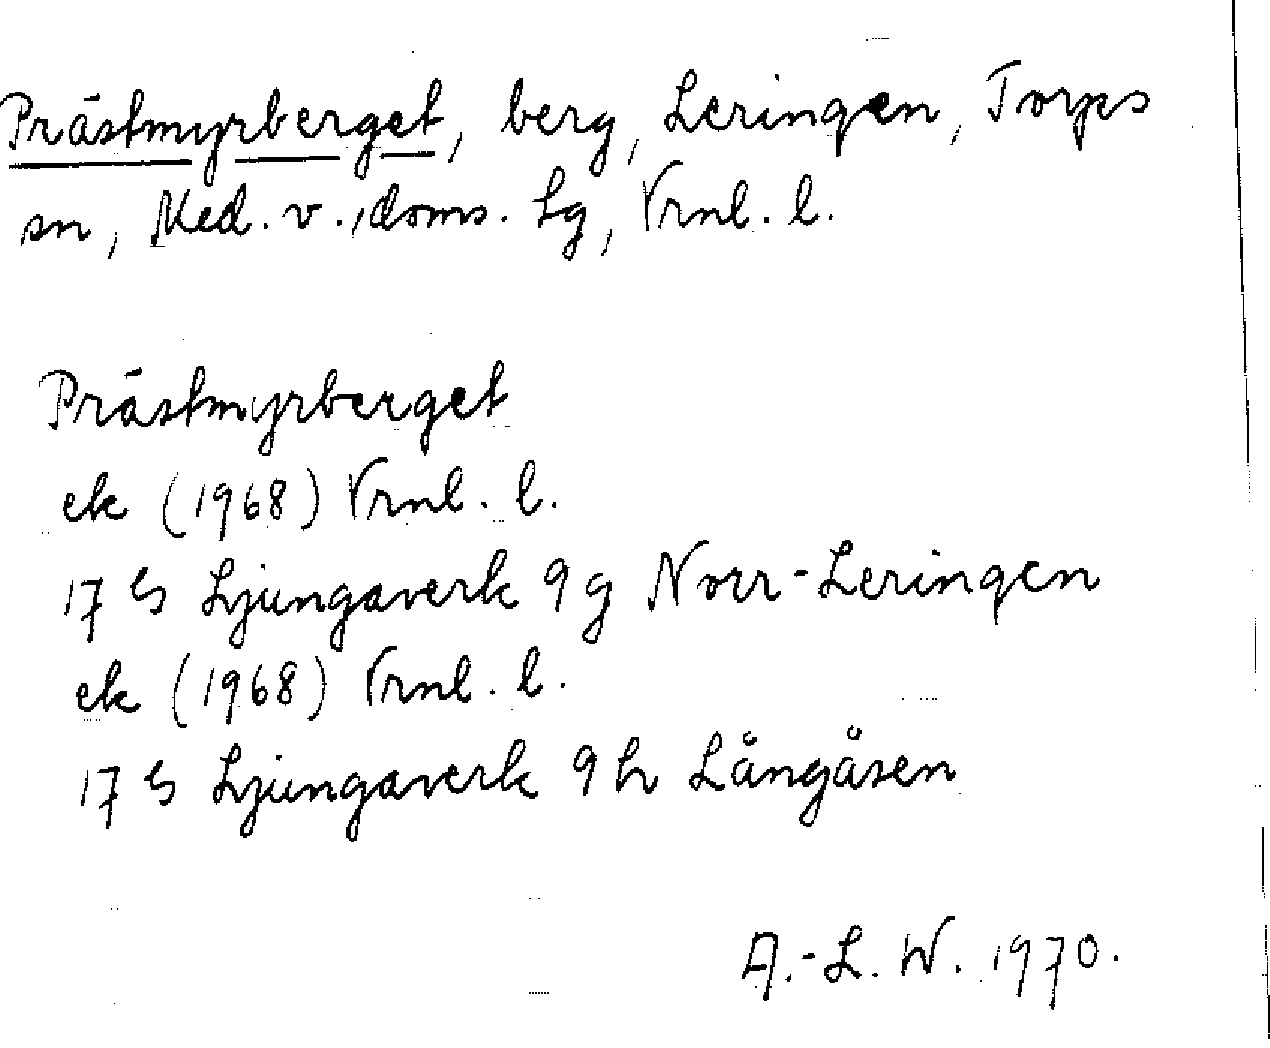 Prästmyrberget, berg, Leringen, Torps
sn, Med. v., doms. Lg, Vrnl. l.
Prästmyrberget
ek (1968) Vrnl. l.
17 G Ljungaverk 9 g Norr-Leringen
ek (1968) Vrnl. l.
17 G Ljungaverk 9 h Långåsen
A.-L. W. 1970.